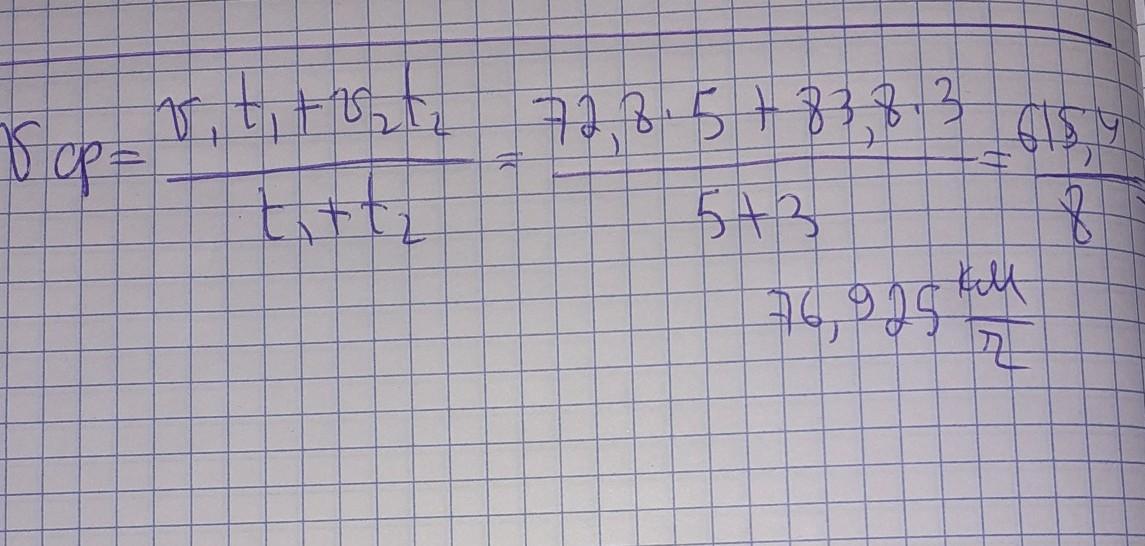 v cp = (v₁t₁ + v₂t₂)/(t₁ + t₂) = (72,8 · 5 + 83,8 · 3)/(5 + 3) = 615,4/8
76,925 км/ч